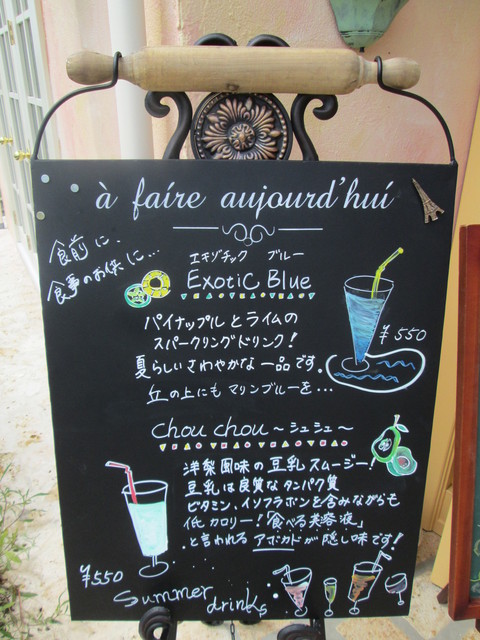 à faire aujourd'hui
食前に、
食事のお供に…
エキゾチック ブルー
Exotic Blue
パイナップルとライムの
スパークリングドリンク!
夏らしいさわやかな一品です。
丘の上にもマリンブルーを…
¥550
chou chou ~シュシュ~
洋梨風味の豆乳スムージー!
豆乳は良質なタンパク質
ビタミン、イソフラボンを含みながらも
低カロリー!"食べる美容液"
と言われるアボカドが隠し味です!
¥550
Summer
drinks